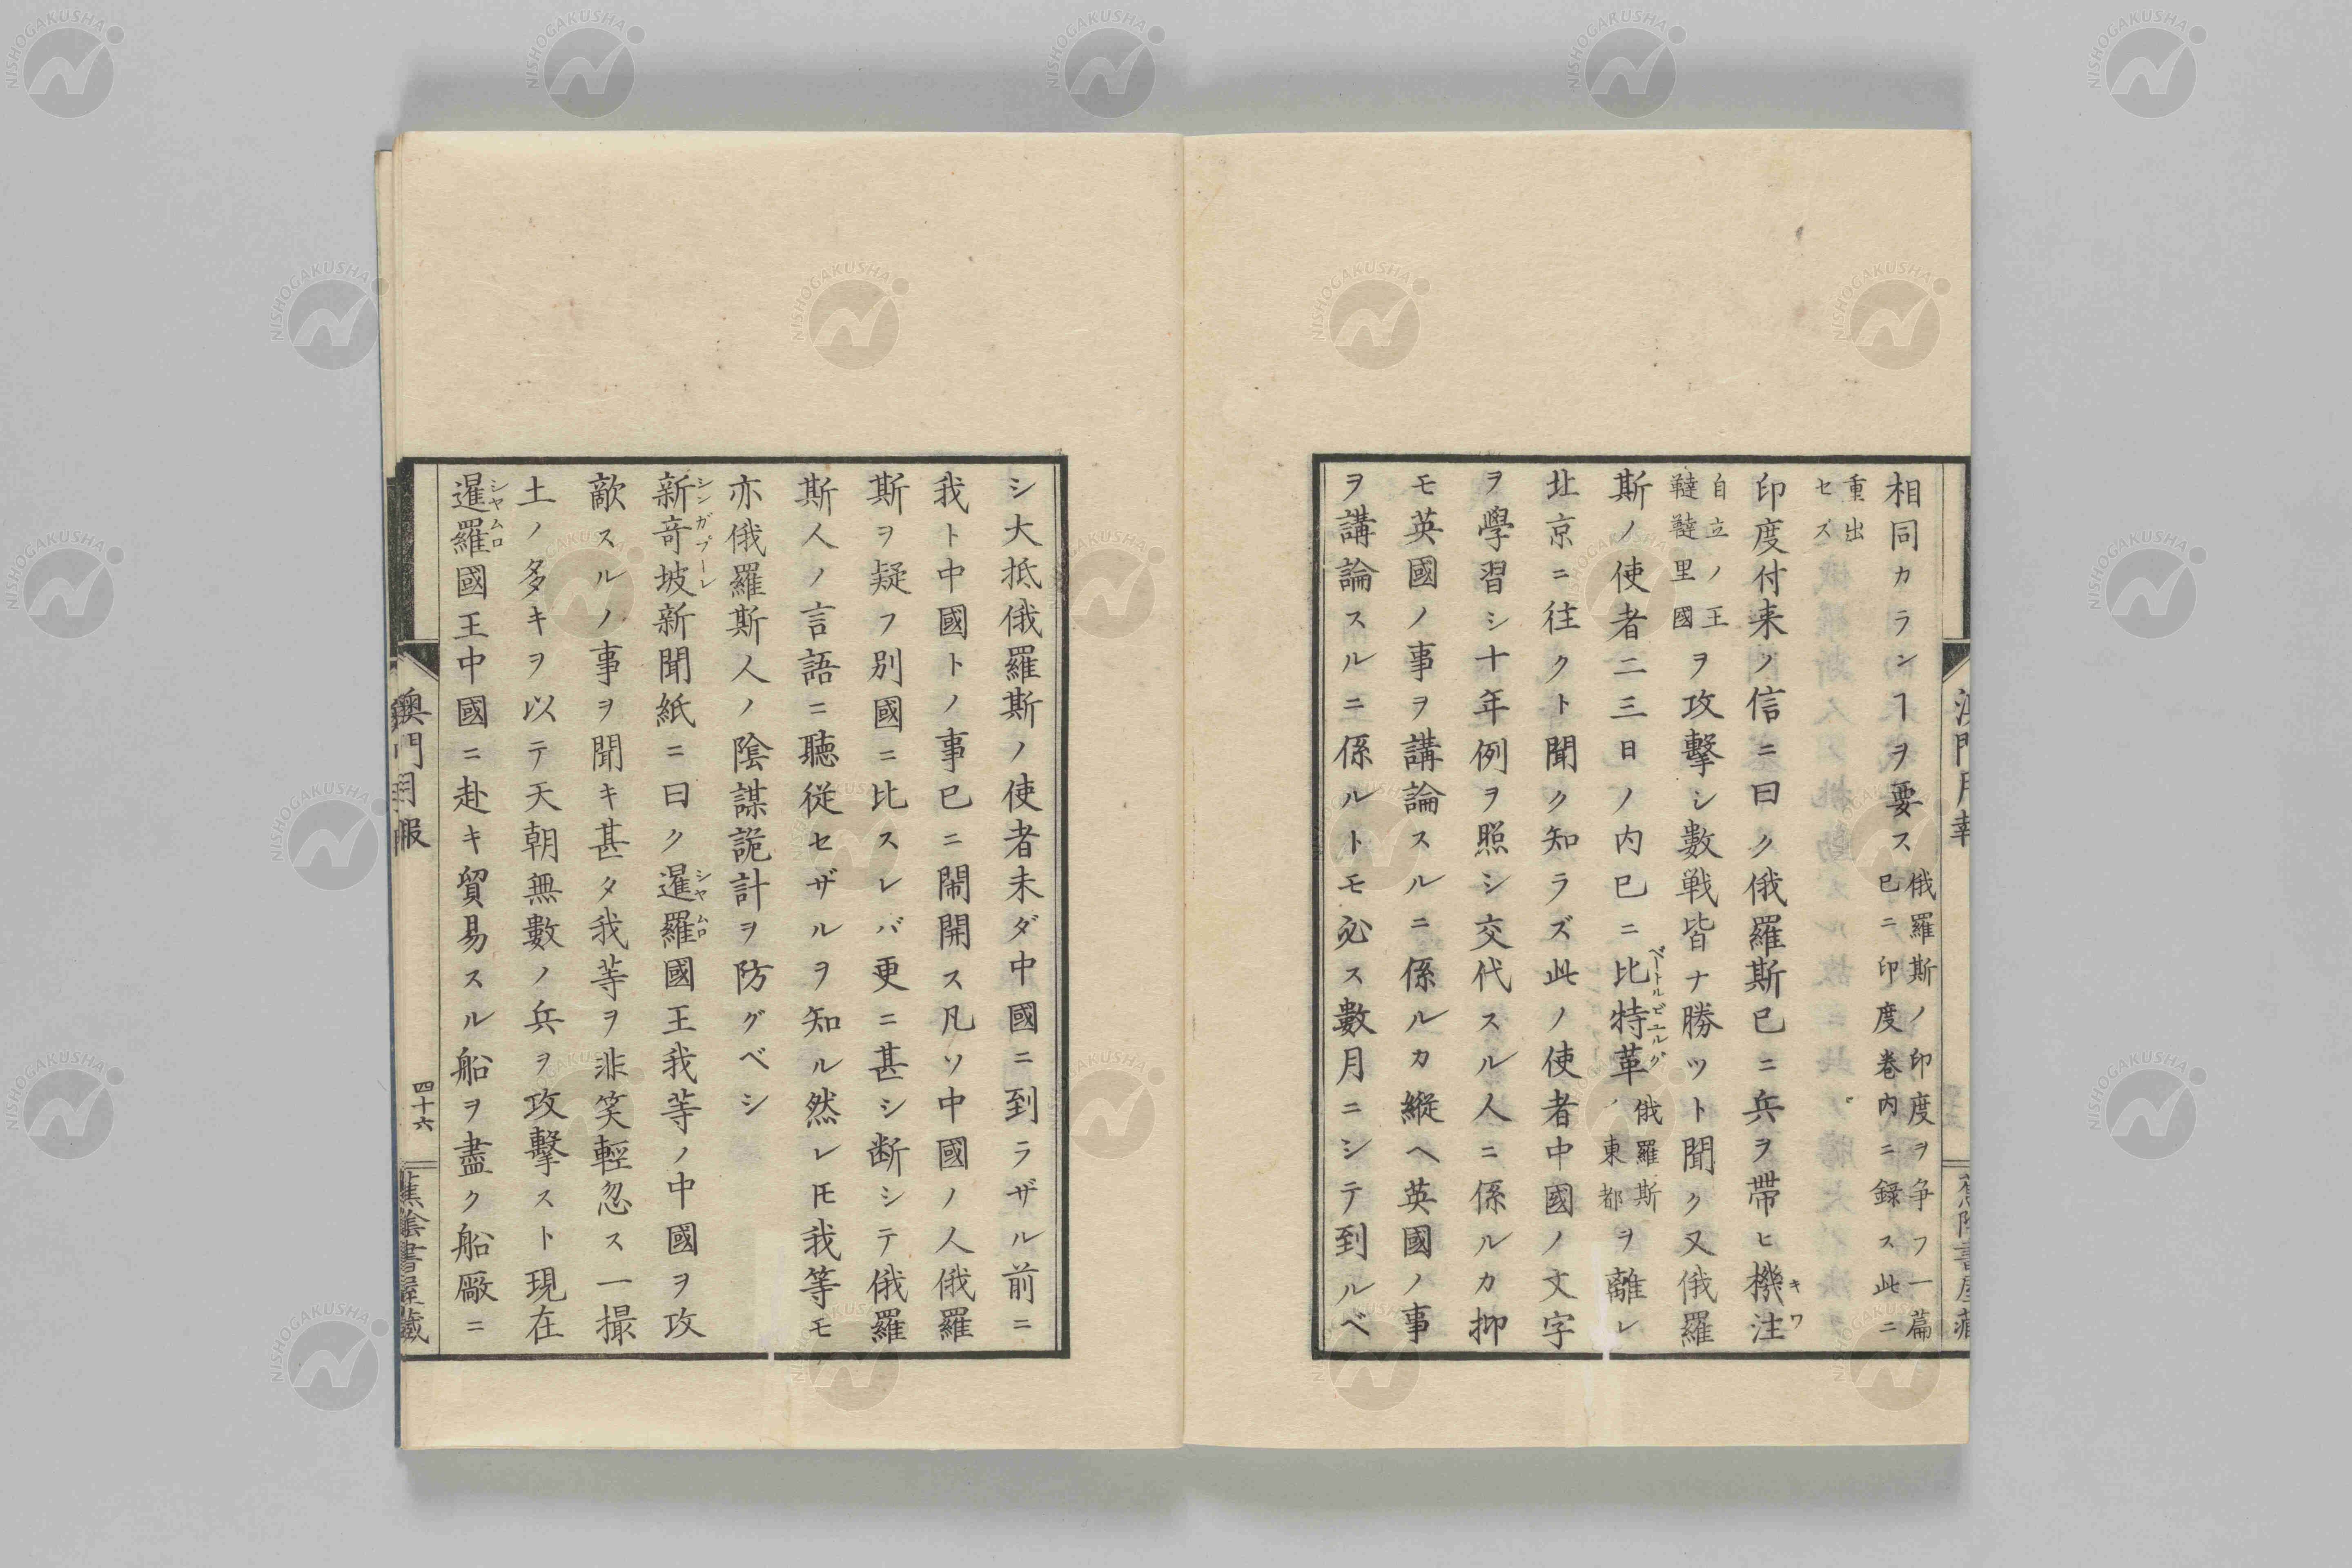 相同カランヿヲ要ス俄羅斯ノ印度ヲ争フ一篇
已ニ印度卷内ニ録ス此ニ
重出
セズ
印度付来ノ信ニ曰ク俄羅斯已ニ兵ヲ帶ヒ機注
キワ
自立ノ王
韃韃里國
ヲ攻擊シ數戦皆ナ勝ツト聞ク又俄羅
斯ノ使者二三日ノ内已ニ比特革
ベートルビーニルグ
俄羅斯
ノ東都
ヲ離レ
北京ニ往クト聞ク知ラズ此ノ使者中國ノ文字
ヲ學習シ十年例ヲ照シ交代スル人ニ係ルカ抑
モ英國ノ事ヲ講論スルニ係ルカ縱ヘ英國ノ事
ヲ講論スルニ係ルトモ必ス數月ニシテ到ルベ
シ大抵俄羅斯ノ使者未ダ中國ニ到ラザル前ニ
我ト中國トノ事已ニ閙開ス凡ソ中國ノ人俄羅
斯ヲ疑フ別國ニ比スレバ更ニ甚シ断シテ俄羅
斯人ノ言語ニ聽從セザルヲ知ル然レ𪜈我等モ
亦俄羅斯人ノ陰謀詭計ヲ防グベシ
新竒坡新聞紙ニ曰ク暹羅國王我等ノ中國ヲ攻
シンガプーレ
シヤムロ
敵スルノ事ヲ聞キ甚タ我等ヲ非笑輕忽ス一撮
土ノ多キヲ以テ天朝無數ノ兵ヲ攻擊スト現在
暹羅國王中國ニ赴キ貿易スル船ヲ盡ク船廠ニ
シヤムロ
澳門月報
四十六
蕉陰書屋藏